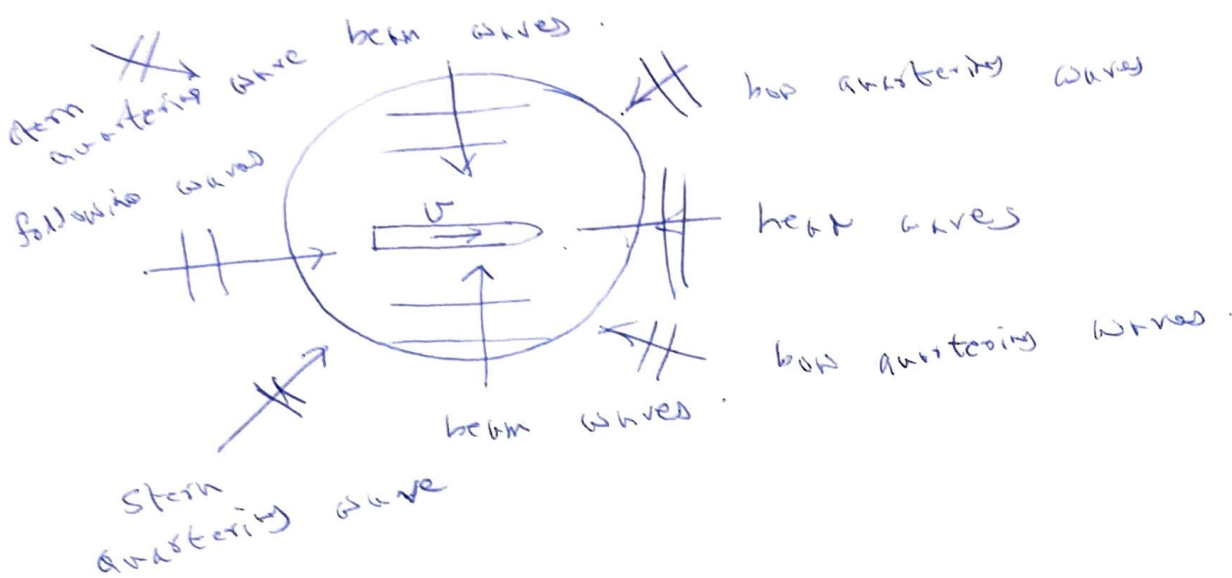 beam waves.
stern
quartering wave
bow quartering waves
following waves
v
head waves
bow quartering waves.
beam waves.
Stern
quartering wave